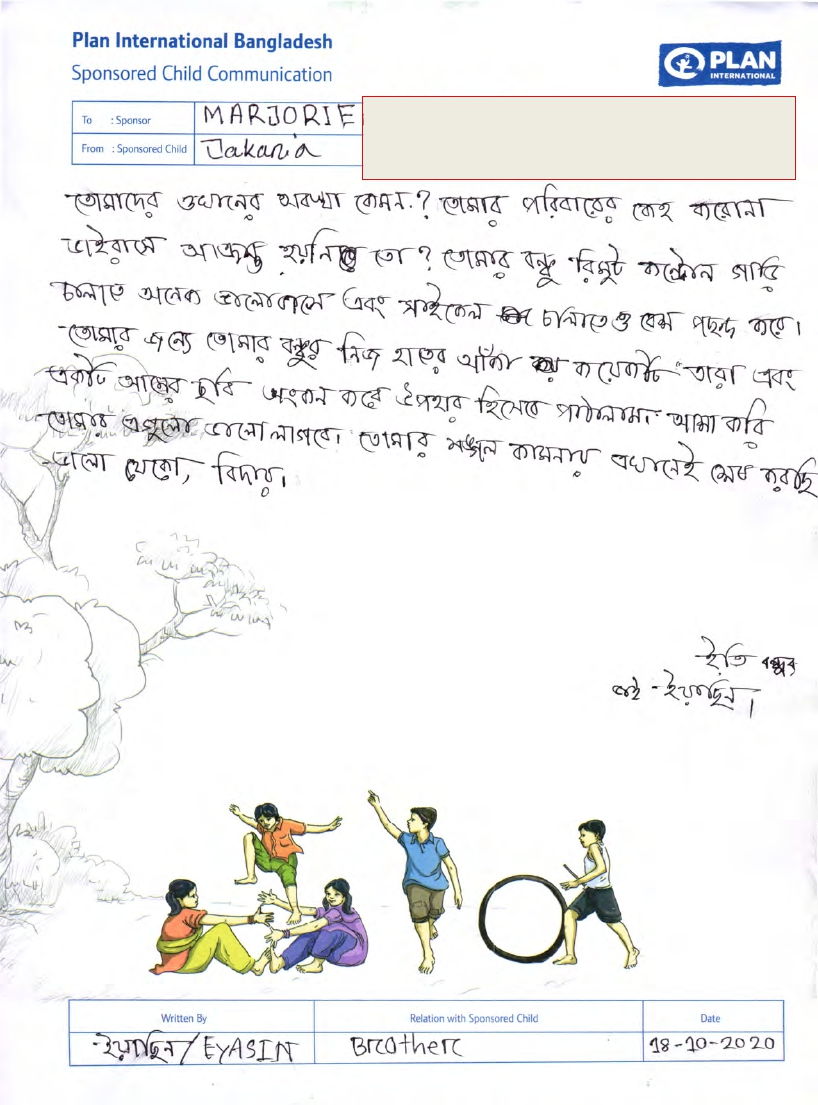 Plan International Bangladesh
Sponsored Child Communication
PLAN
INTERNATIONAL
To : Sponsor MARJORIE
From : Sponsored Child Jakaria
তোমাদের ওখানের অবস্থা কেমন.? তোমার পরিবারের কেহ করোনা
ভাইরাসে আক্রান্ত হয়নি তো? তোমার বন্ধু রিমুট কন্ট্রোল গাড়ি
চালাতে অনেক ভালোবাসে এবং সাইকেল চালাতেও বেশ পছন্দ করে।
তোমার জন্যে তোমার বন্ধুর নিজ হাতের আঁকা কয়েকটি তারা এবং
একটি আমের ছবি অংকন করে উপহার হিসেবে পাঠালাম। আশা করি
তোমার এগুলো ভালো লাগবে। তোমার মঙ্গল কামনায় এখানেই শেষ করছি
ভালো থেকো, বিদায়।
ইতি বন্ধুর
ভাই - ইয়াছিন।
Written By Relation with Sponsored Child Date
ইয়াছিন/EYASIN Brother 18-10-2020